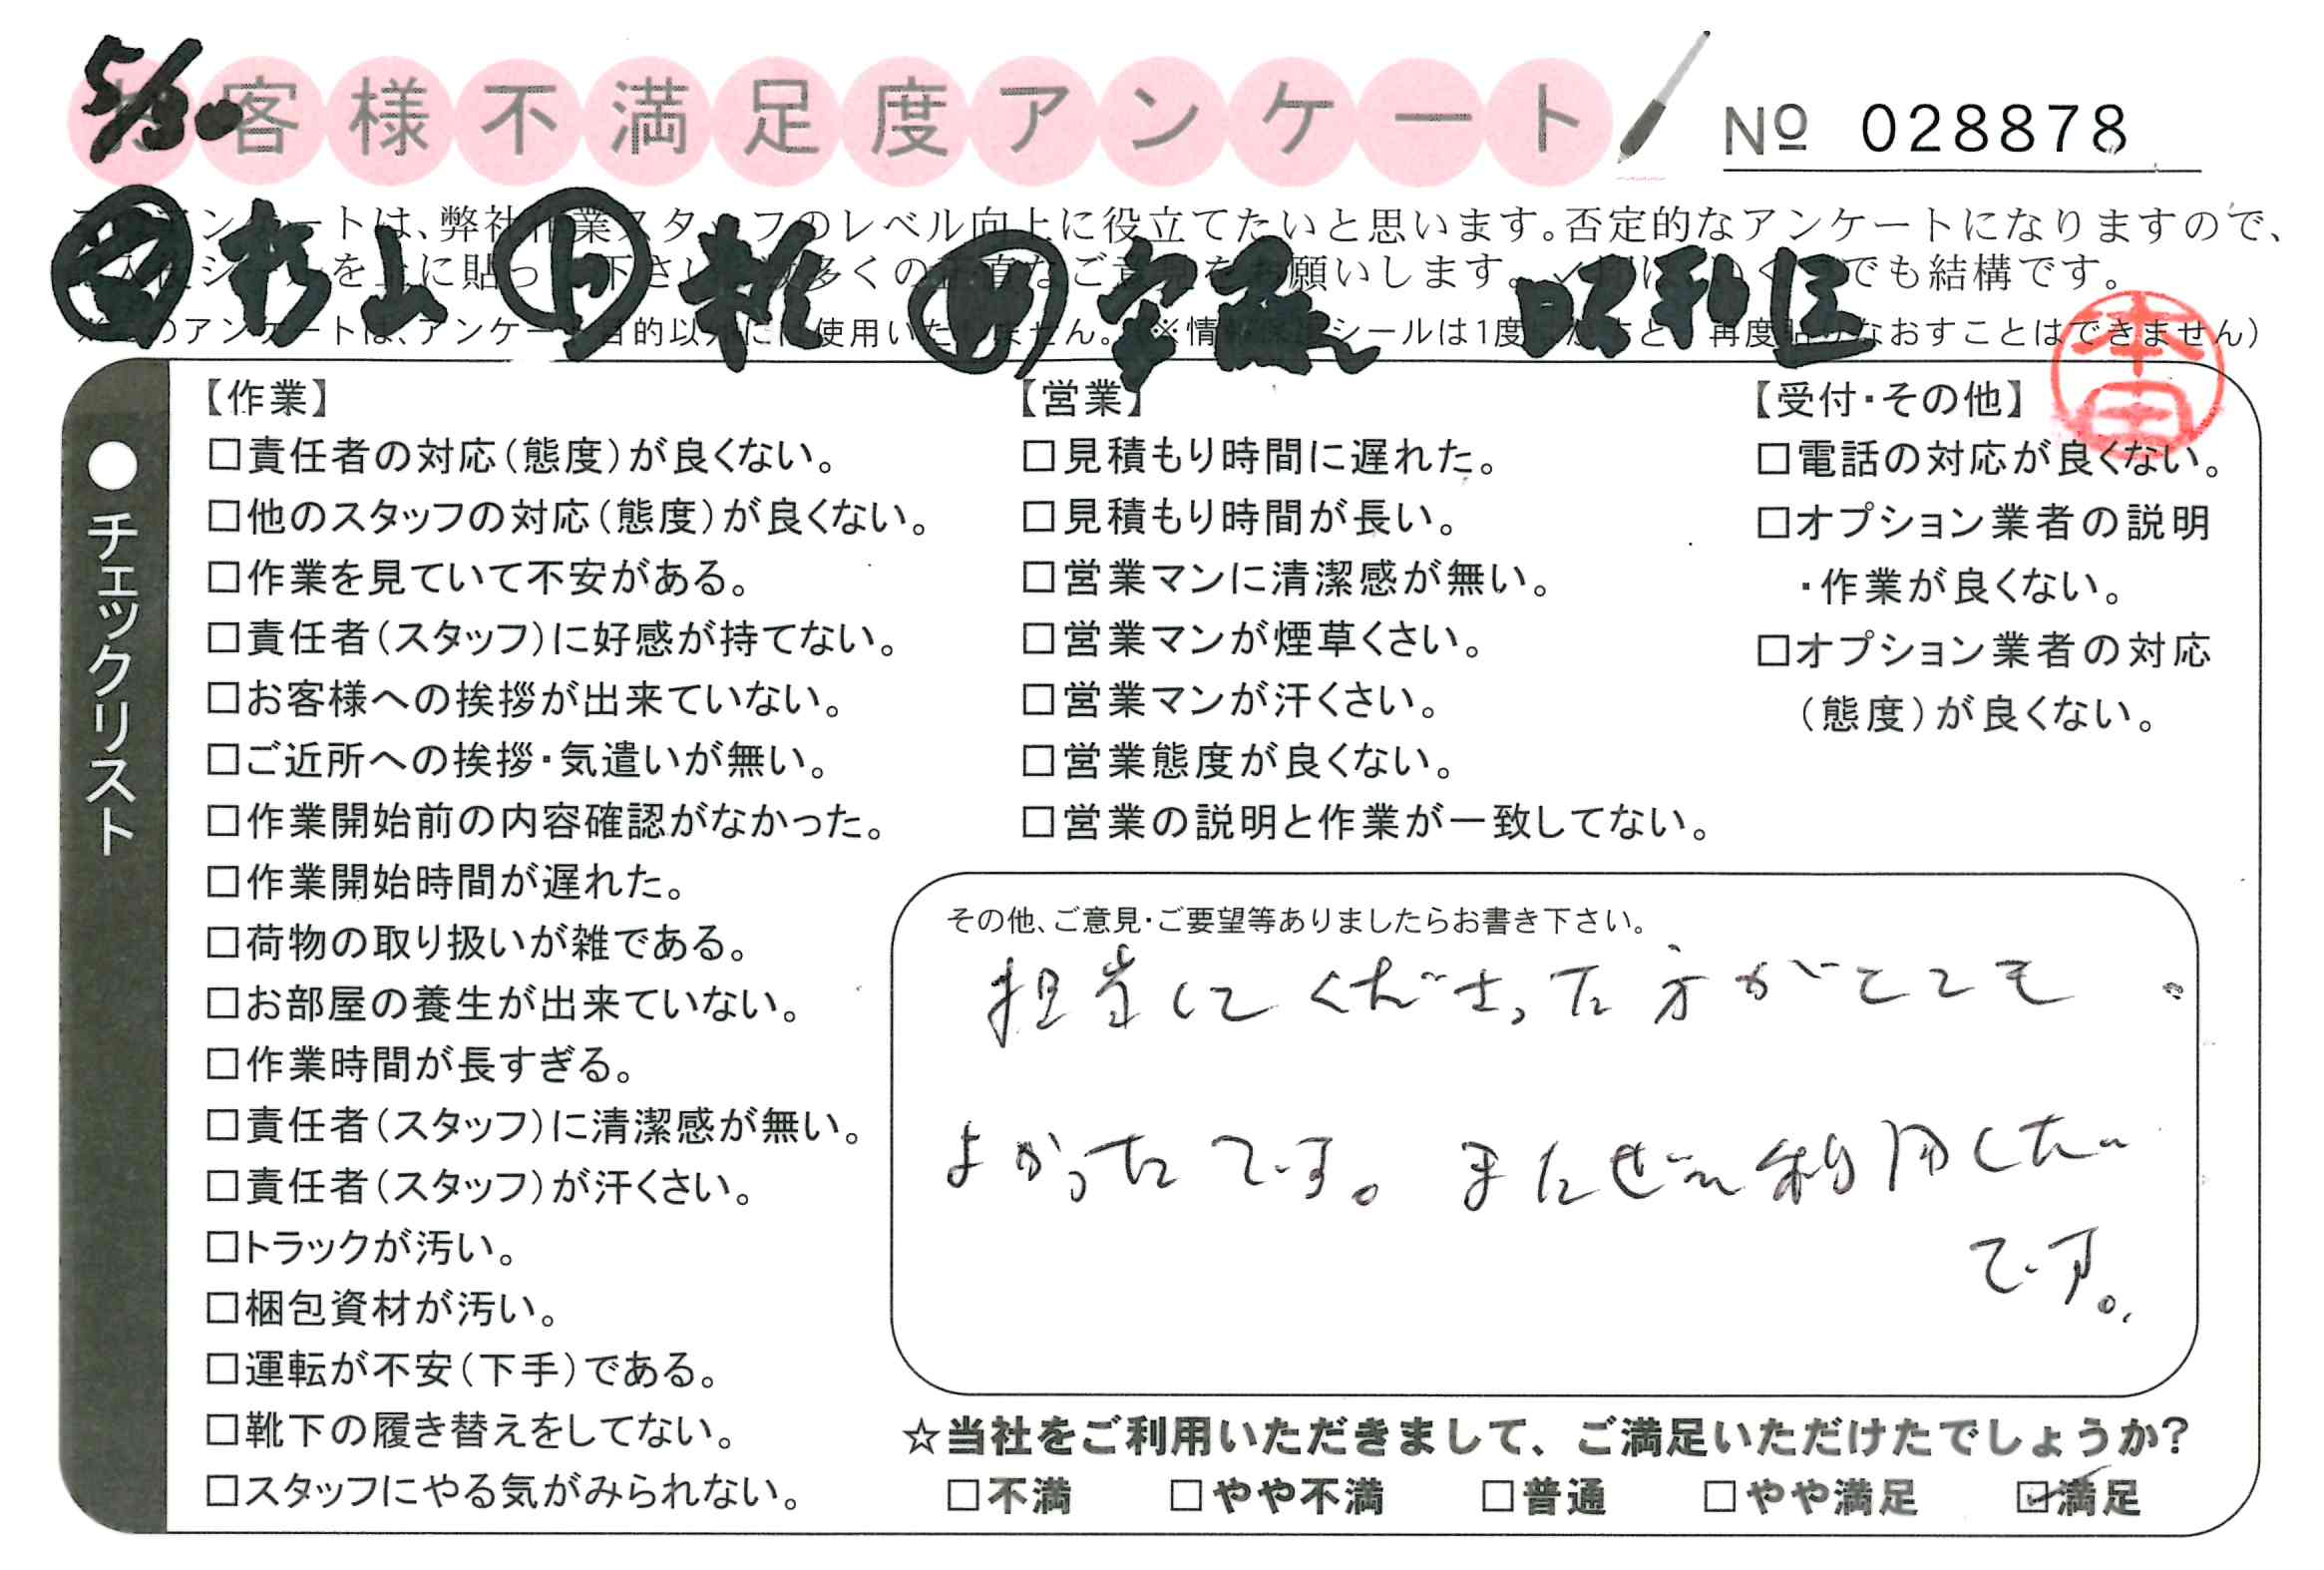 5/30
お客様不満足度アンケート
№ 028878
このアンケートは、弊社作業スタッフのレベル向上に役立てたいと思います。否定的なアンケートになりますので、
を上に貼って下さい。数多くの正直なご意見をお願いします。でも結構です。
※このアンケートは、アンケート目的以外には使用いたしません。(※情報保護シールは1度はがすと、再度貼りなおすことはできません)
マ 杉山 ト ア 昭和区
本田
●チェックリスト
【作業】
□責任者の対応(態度)が良くない。
□他のスタッフの対応(態度)が良くない。
□作業を見ていて不安がある。
□責任者(スタッフ)に好感が持てない。
□お客様への挨拶が出来ていない。
□ご近所への挨拶・気遣いが無い。
□作業開始前の内容確認がなかった。
□作業開始時間が遅れた。
□荷物の取り扱いが雑である。
□お部屋の養生が出来ていない。
□作業時間が長すぎる。
□責任者(スタッフ)に清潔感が無い。
□責任者(スタッフ)が汗くさい。
□トラックが汚い。
□梱包資材が汚い。
□運転が不安(下手)である。
□靴下の履き替えをしてない。
□スタッフにやる気がみられない。
【営業】
□見積もり時間に遅れた。
□見積もり時間が長い。
□営業マンに清潔感が無い。
□営業マンが煙草くさい。
□営業マンが汗くさい。
□営業態度が良くない。
□営業の説明と作業が一致してない。
【受付・その他】
□電話の対応が良くない。
□オプション業者の説明
・作業が良くない。
□オプション業者の対応
(態度)が良くない。
その他、ご意見・ご要望等ありましたらお書き下さい。
担当してくださった方がとても
よかったです。またぜひ利用したい
です。
☆当社をご利用いただきまして、ご満足いただけたでしょうか?
□不満 □やや不満 □普通 □やや満足 ☑満足